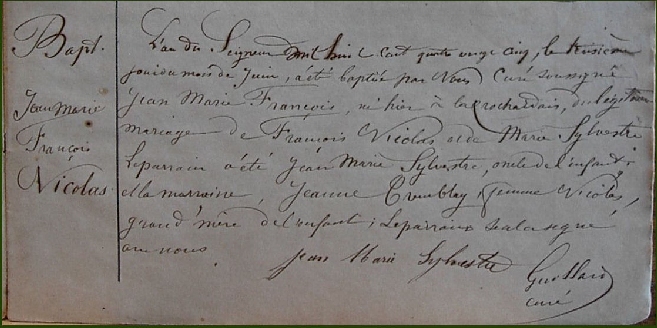 Bapt.
Jean Marie
François
Nicolas.
L'an du Seigneur mil huit cent quatre vingt cinq, le troisième
jour du mois de Juin, a été baptisé par Nous Curé soussigné
Jean Marie François, né hier à la rochardais, du légitime
mariage de François Nicolas et de Marie Sylvestre
Le parrain a été Jean Marie Sylvestre, oncle de l'enfant,
et la marraine, Jeanne Tremblay femme Nicolas,
grand'mère de l'enfant; Le parrain seul a signé
avec nous
Jean Marie Sylvestre
curé